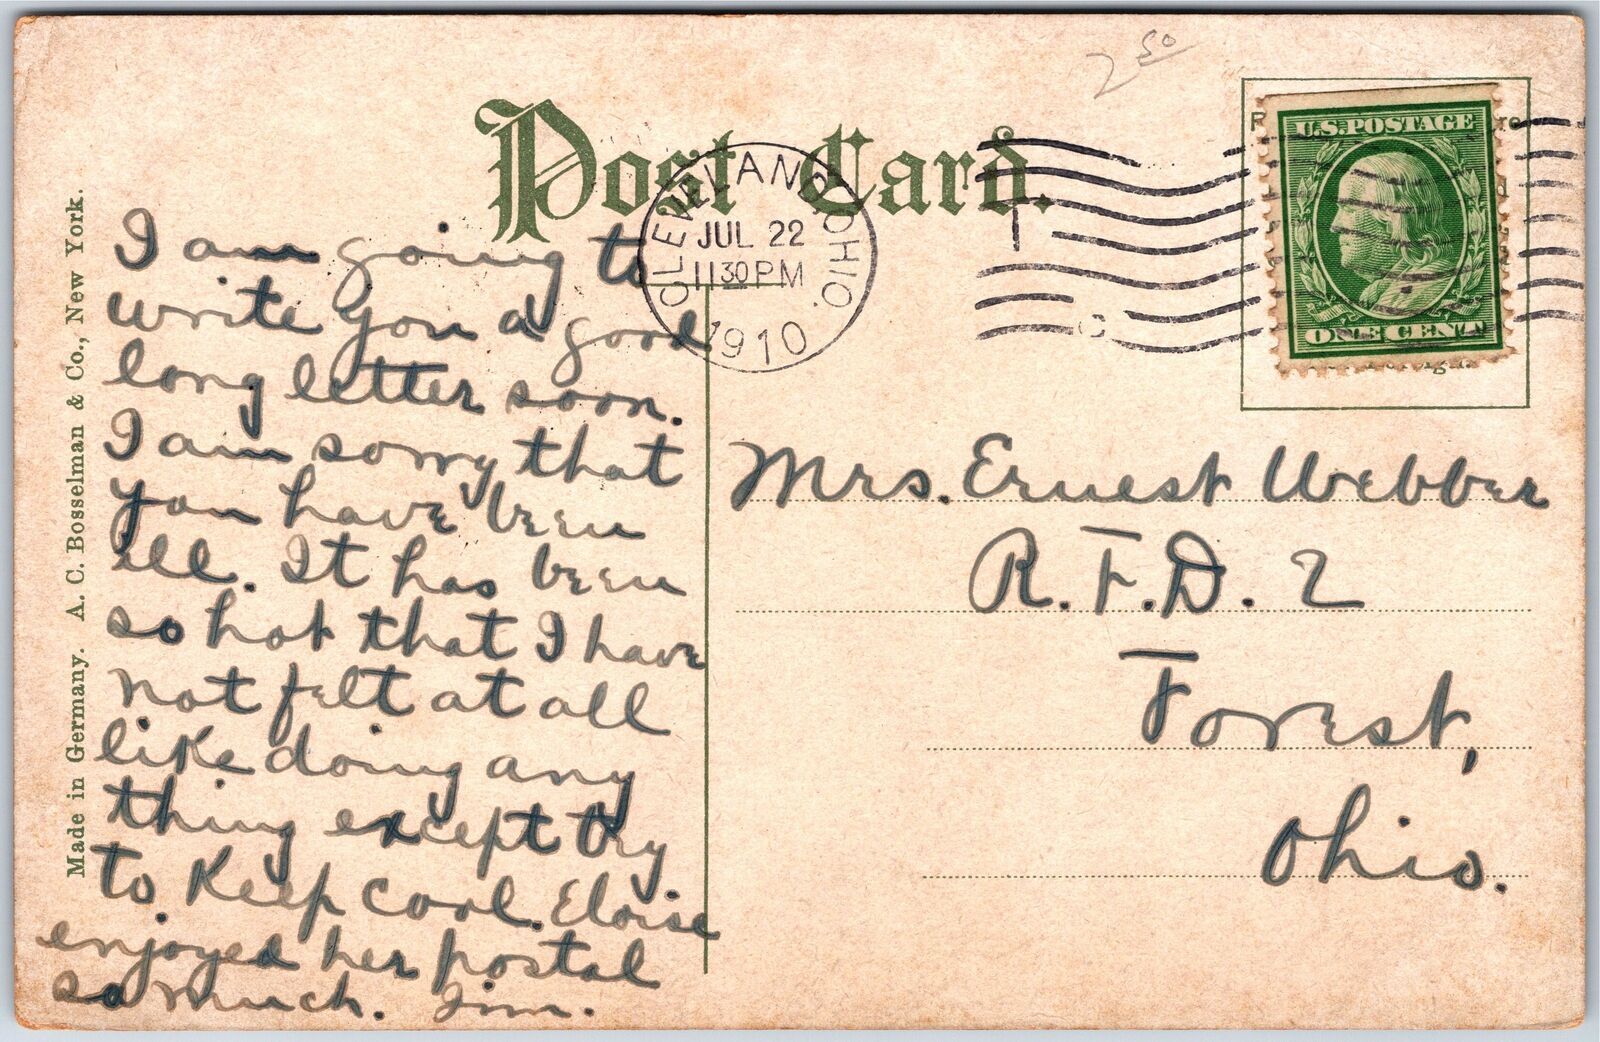 2 50
Post Card.
CLEVELAND, OHIO.
JUL 22
1130PM
1910
U.S. POSTAGE
ONE CENT
Made in Germany. A. C. Bosselman & Co., New York.
I am going to
write you a good
long letter soon.
I am sorry that
you have been
ill. It has been
so hot that I have
not felt at all
like doing any
thing except try
to keep cool. Eloise
enjoyed her postal
so much. Jim.
Mrs. Ernest Webber
R.F.D. 2
Forest,
Ohio.